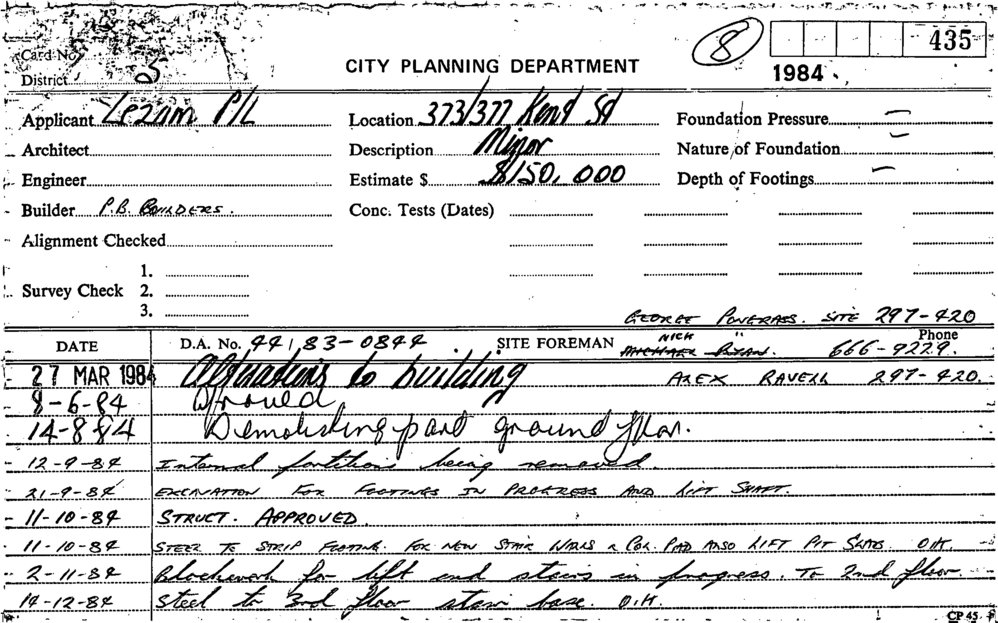 8 435
Card No. 1984
District 05 CITY PLANNING DEPARTMENT
Applicant Lezam P/L Location 373/377 Kent St Foundation Pressure —
Architect Description Minor Nature of Foundation —
Engineer Estimate $ $150,000 Depth of Footings —
Builder P.B. BUILDERS. Conc. Tests (Dates)
Alignment Checked
1.
Survey Check 2.
3.
GEORGE SITE 297-420
DATE D.A. No. 44/83-0844 SITE FOREMAN NICK " Phone 666-9229.
27 MAR 1984 Alterations to building ALEX RAVELL 297-420.
8-6-84 Approved
14-8-84 Demolishing part ground floor.
12-9-84 Internal partitions being removed.
21-9-84 EXCAVATION FOR FOOTINGS IN PROGRESS AND LIFT SHAFT.
11-10-84 STRUCT. APPROVED.
11-10-84 STEEL TO STRIP FOOTING. FOR NEW STAIR WALLS & COL. PAD ALSO LIFT PIT SLABS. O.K.
2-11-84 Blockwork for lift and stairs in progress. To 2nd floor.
14-12-84 Steel to 3rd floor stair base. O.K.
CP 45